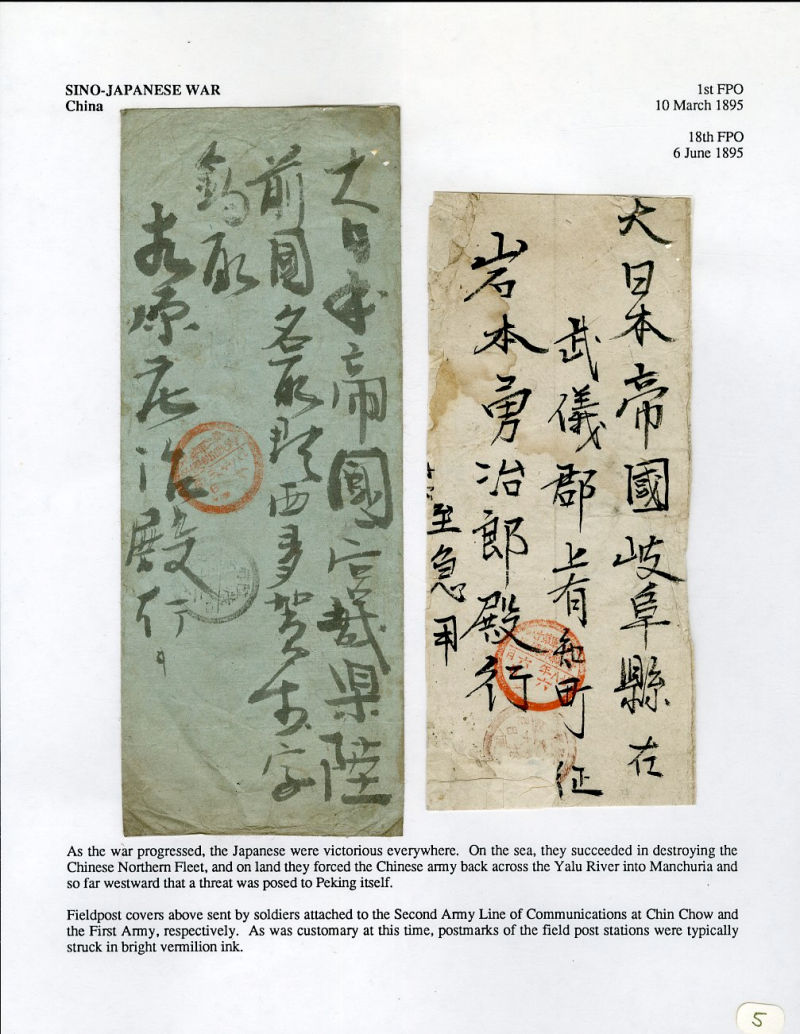 SINO-JAPANESE WAR
China
1st FPO
10 March 1895
18th FPO
6 June 1895
大日本帝國宮城県陸
前國名取郡西多賀村字
鈎取
原庄治殿行
大日本帝國岐阜縣
武儀郡上有知町
岩本勇治郎殿行
至急用
As the war progressed, the Japanese were victorious everywhere. On the sea, they succeeded in destroying the
Chinese Northern Fleet, and on land they forced the Chinese army back across the Yalu River into Manchuria and
so far westward that a threat was posed to Peking itself.
Fieldpost covers above sent by soldiers attached to the Second Army Line of Communications at Chin Chow and
the First Army, respectively. As was customary at this time, postmarks of the field post stations were typically
struck in bright vermilion ink.
5